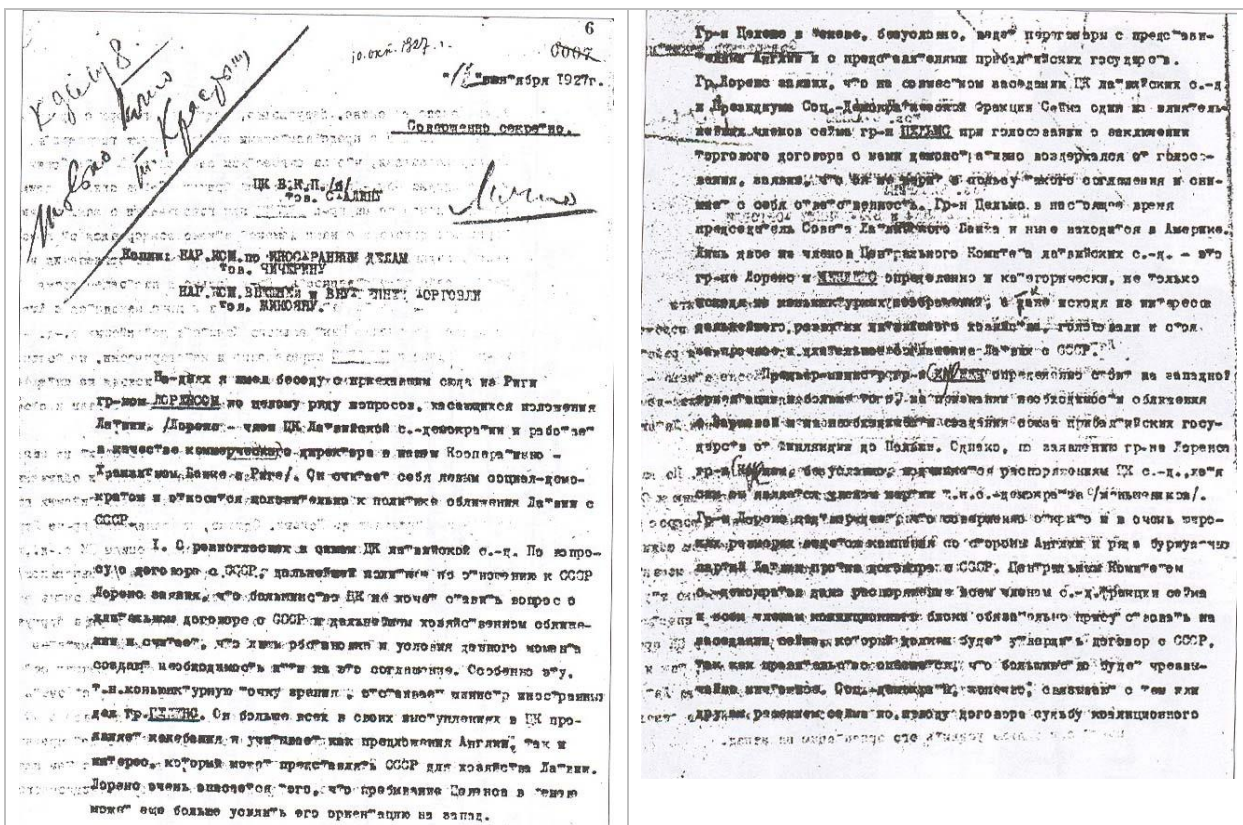 6
10.окт.1927 г.
0007
"12"сентября 1927г.
К делу 8
лично
т. Красину
Совершенно секретно.
ЦК В.К.П./б/
тов. СТАЛИНУ
Лично
Копии: НАР.КОМ.по ИНОСТРАННЫМ ДЕЛАМ
тов. ЧИЧЕРИНУ
НАР.КОМ.ВНЕШНЕЙ и ВНУТРЕННЕЙ ТОРГОВЛИ
тов. МИКОЯНУ.
На-днях я имел беседу с приехавшим сюда из Риги
гр-ном ЛОРЕНСОМ по целому ряду вопросов, касающихся положения
Латвии. /Лоренс - член ЦК Латвийской с.-демократии и работает
в качестве коммерческого директора в нашем Кооперативно -
Транзитном Банке в Риге/. Он считает себя левым социал-демо-
кратом и относится положительно к политике сближения Латвии с
СССР.
I. О разногласиях в самом ЦК латвийской с.-д. По вопро-
су о договоре с СССР, дальнейшей политике по отношению к СССР
Лоренс заявил, что большинство ЦК не хочет ставить вопрос о
длительном договоре с СССР и дальнейшем хозяйственном сближе-
нии и считает, что лишь обстановка и условия данного момента
создают необходимость итти на это соглашение. Особенно эту,
т.н.коньюнктурную точку зрения , отстаивает министр иностранных
дел гр.ЦЕЛЕНС. Он больше всех в своих выступлениях в ЦК про-
являет колебания и учитывает как предложения Англии, так и
интерес, который может представлять СССР для хозяйства Латвии.
Лоренс очень опасается того, что пребывание Целенса в Женеве
может еще больше усилить его ориентацию на запад.
Гр-н Целенс в Женеве, безусловно, ведет переговоры с представи-
телями Англии и с представителями прибалтийских государств.
Гр.Лоренс заявил, что на совместном заседании ЦК латвийских с.-д
и Президиума Соц.-Демократической Фракции Сейма один из влиятель-
нейших членов сейма гр-н при голосовании о заключении
торгового договора с нами демонстративно воздержался от голосо-
вания, заявив, что он не верит в пользу такого соглашения и сни-
мает с себя ответственность. Гр-н в настоящее время
председатель Совета Латвийского Банка и ныне находится в Америке.
Лишь двое из членов Центрального Комитета латвийских с.-д. - это
гр-не Лоренс и МЕНДЕРС определенно и категорически, не только
исходя из коньюнктурных соображений, а даже исходя из интересов
дальнейшего развития латвийского хозяйства, голосовали и стоя
за прочное и длительное соглашение Латвии с СССР.
Премьер-министр гр-н определенно стоит на западной
ориентации и более того, на признании необходимости сближения
с Варшавой и на необходимости создания союза прибалтийских госу-
дарств от Финляндии до Польши. Однако, по заявлению гр-на Лоренса
гр-н безусловно, подчинится распоряжениям ЦК с.-д.,хотя
сам не является членом партии т.н.с.-демократов /меньшевиков/.
Гр-н Лоренс подтверждает, что совершенно открыто и в очень широ-
ких размерах ведется кампания со стороны Англии и ряда буржуазных
партий Латвии против договора с СССР. Центральным Комитетом
с.-демократов дано распоряжение всем членам с.-д.фракции сейма
и всем членам коалиционного блока обязательно присутствовать на
заседании сейма, который должен будет утвердить договор с СССР.
Так как правительство опасается, что большинство будет чрезвы-
чайно ничтожное. Соц.-демократы, конечно, связывают с тем или
другим решением сейма по поводу договора судьбу коалиционного